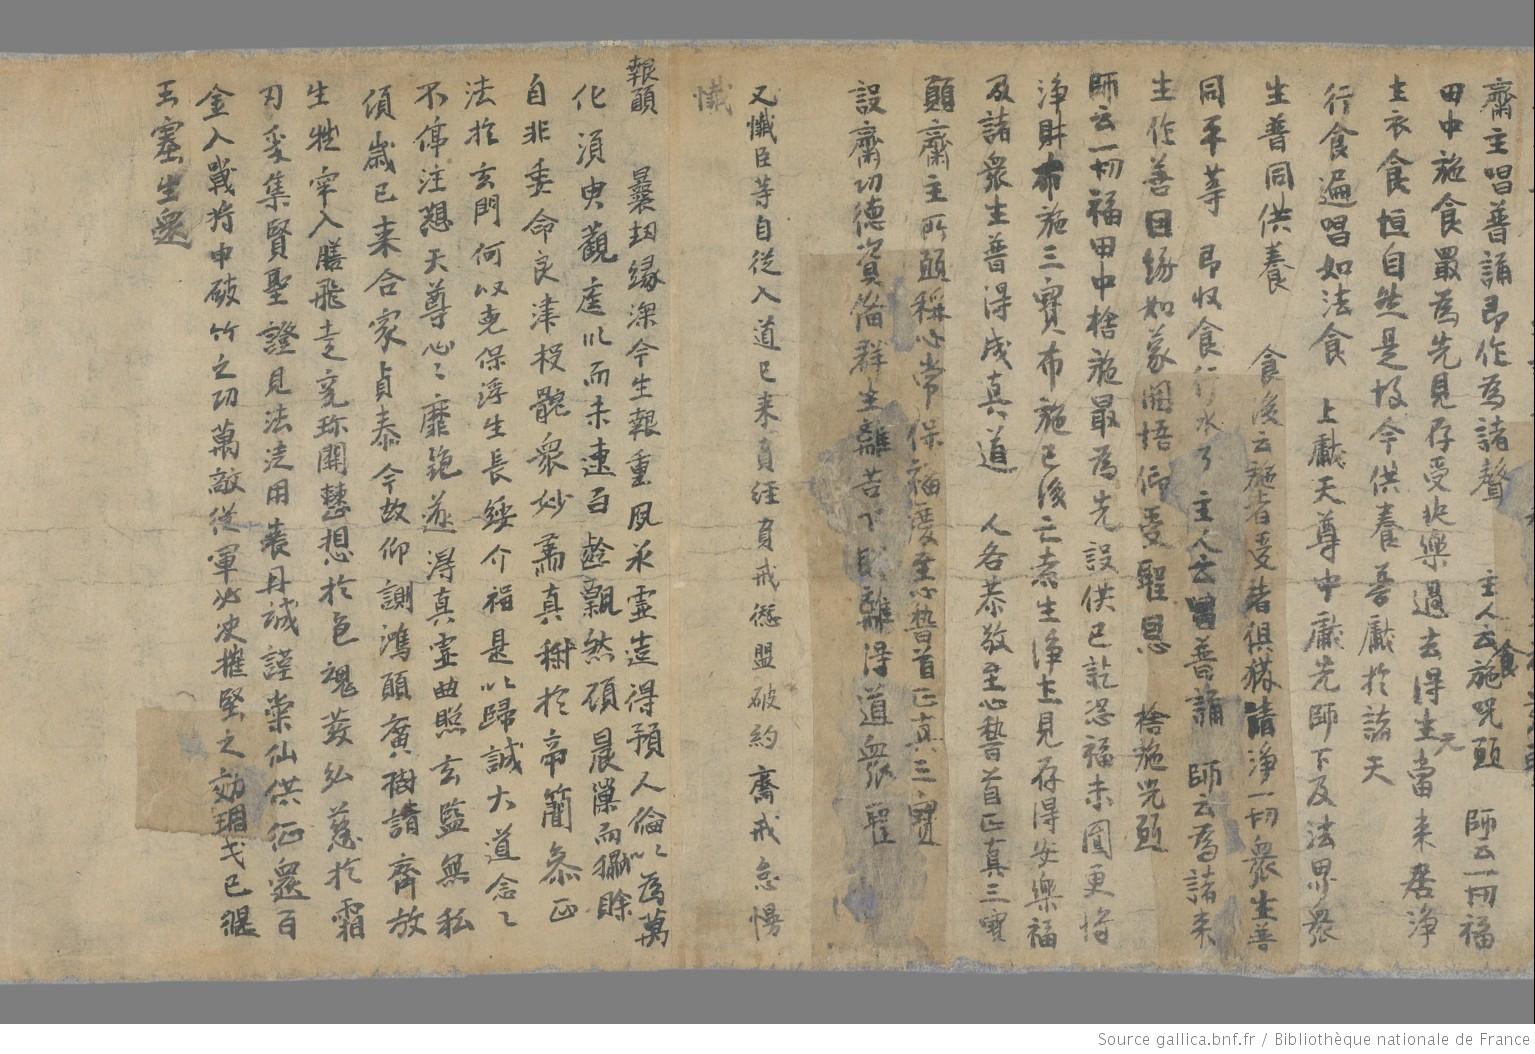 齋主唱普誦即作為諸聲 主人云施咒願 師云一切福
田中施食最為先見存受快樂過去得生當来居淨
土衣食恒自然是故今供養普獻於諸天
行食遍唱如法食 上獻天尊中獻先師下及法界衆
生普同供養 食後云施者受者俱獲諸淨一切衆生普
同平等 即收食行水了 主人云唱普誦 師云為諸来
生作善因緣如蒙開悟仰受聖恩 捨施咒願
師云一切福田中捨施最為先設供已訖恐福未圓更將
淨財布施三寶布施已後亡者生淨土見存得安樂福
及諸衆生普得成真道 人各恭敬至心稽首正真三寶
願齋主所願稱心常保福慶至心稽首正真三寶
設齋功德資備群生離苦下離得道衆聖
又懺臣等自從入道已来負經負戒愆盟破約齋戒怠慢
懺
報願 曩劫緣深今生報重夙承靈造得預人倫以為萬
化須臾觀虛以而未速百齡飄然碩晨而
自非委命良津投骸衆妙薦真於帝簡叅正
法於玄門何以克保浮生長綏介福是以歸誠大道念〻
不停注想天尊心〻靡絶遂得真靈曲照玄監無私
傾歲已来合家貞泰今故仰詶鴻願廣樹請齊放
生牲牢入膳飛走充珎開慧想於色魂發弘慈於霜
刃爰集賢聖證見法用表丹誠謹崇仙供征還百
金入戰將申破竹之功萬敵從軍必决摧堅之効瑂戈已偃
玉塞生還
Source gallica.bnf.fr / Bibliothèque nationale de France